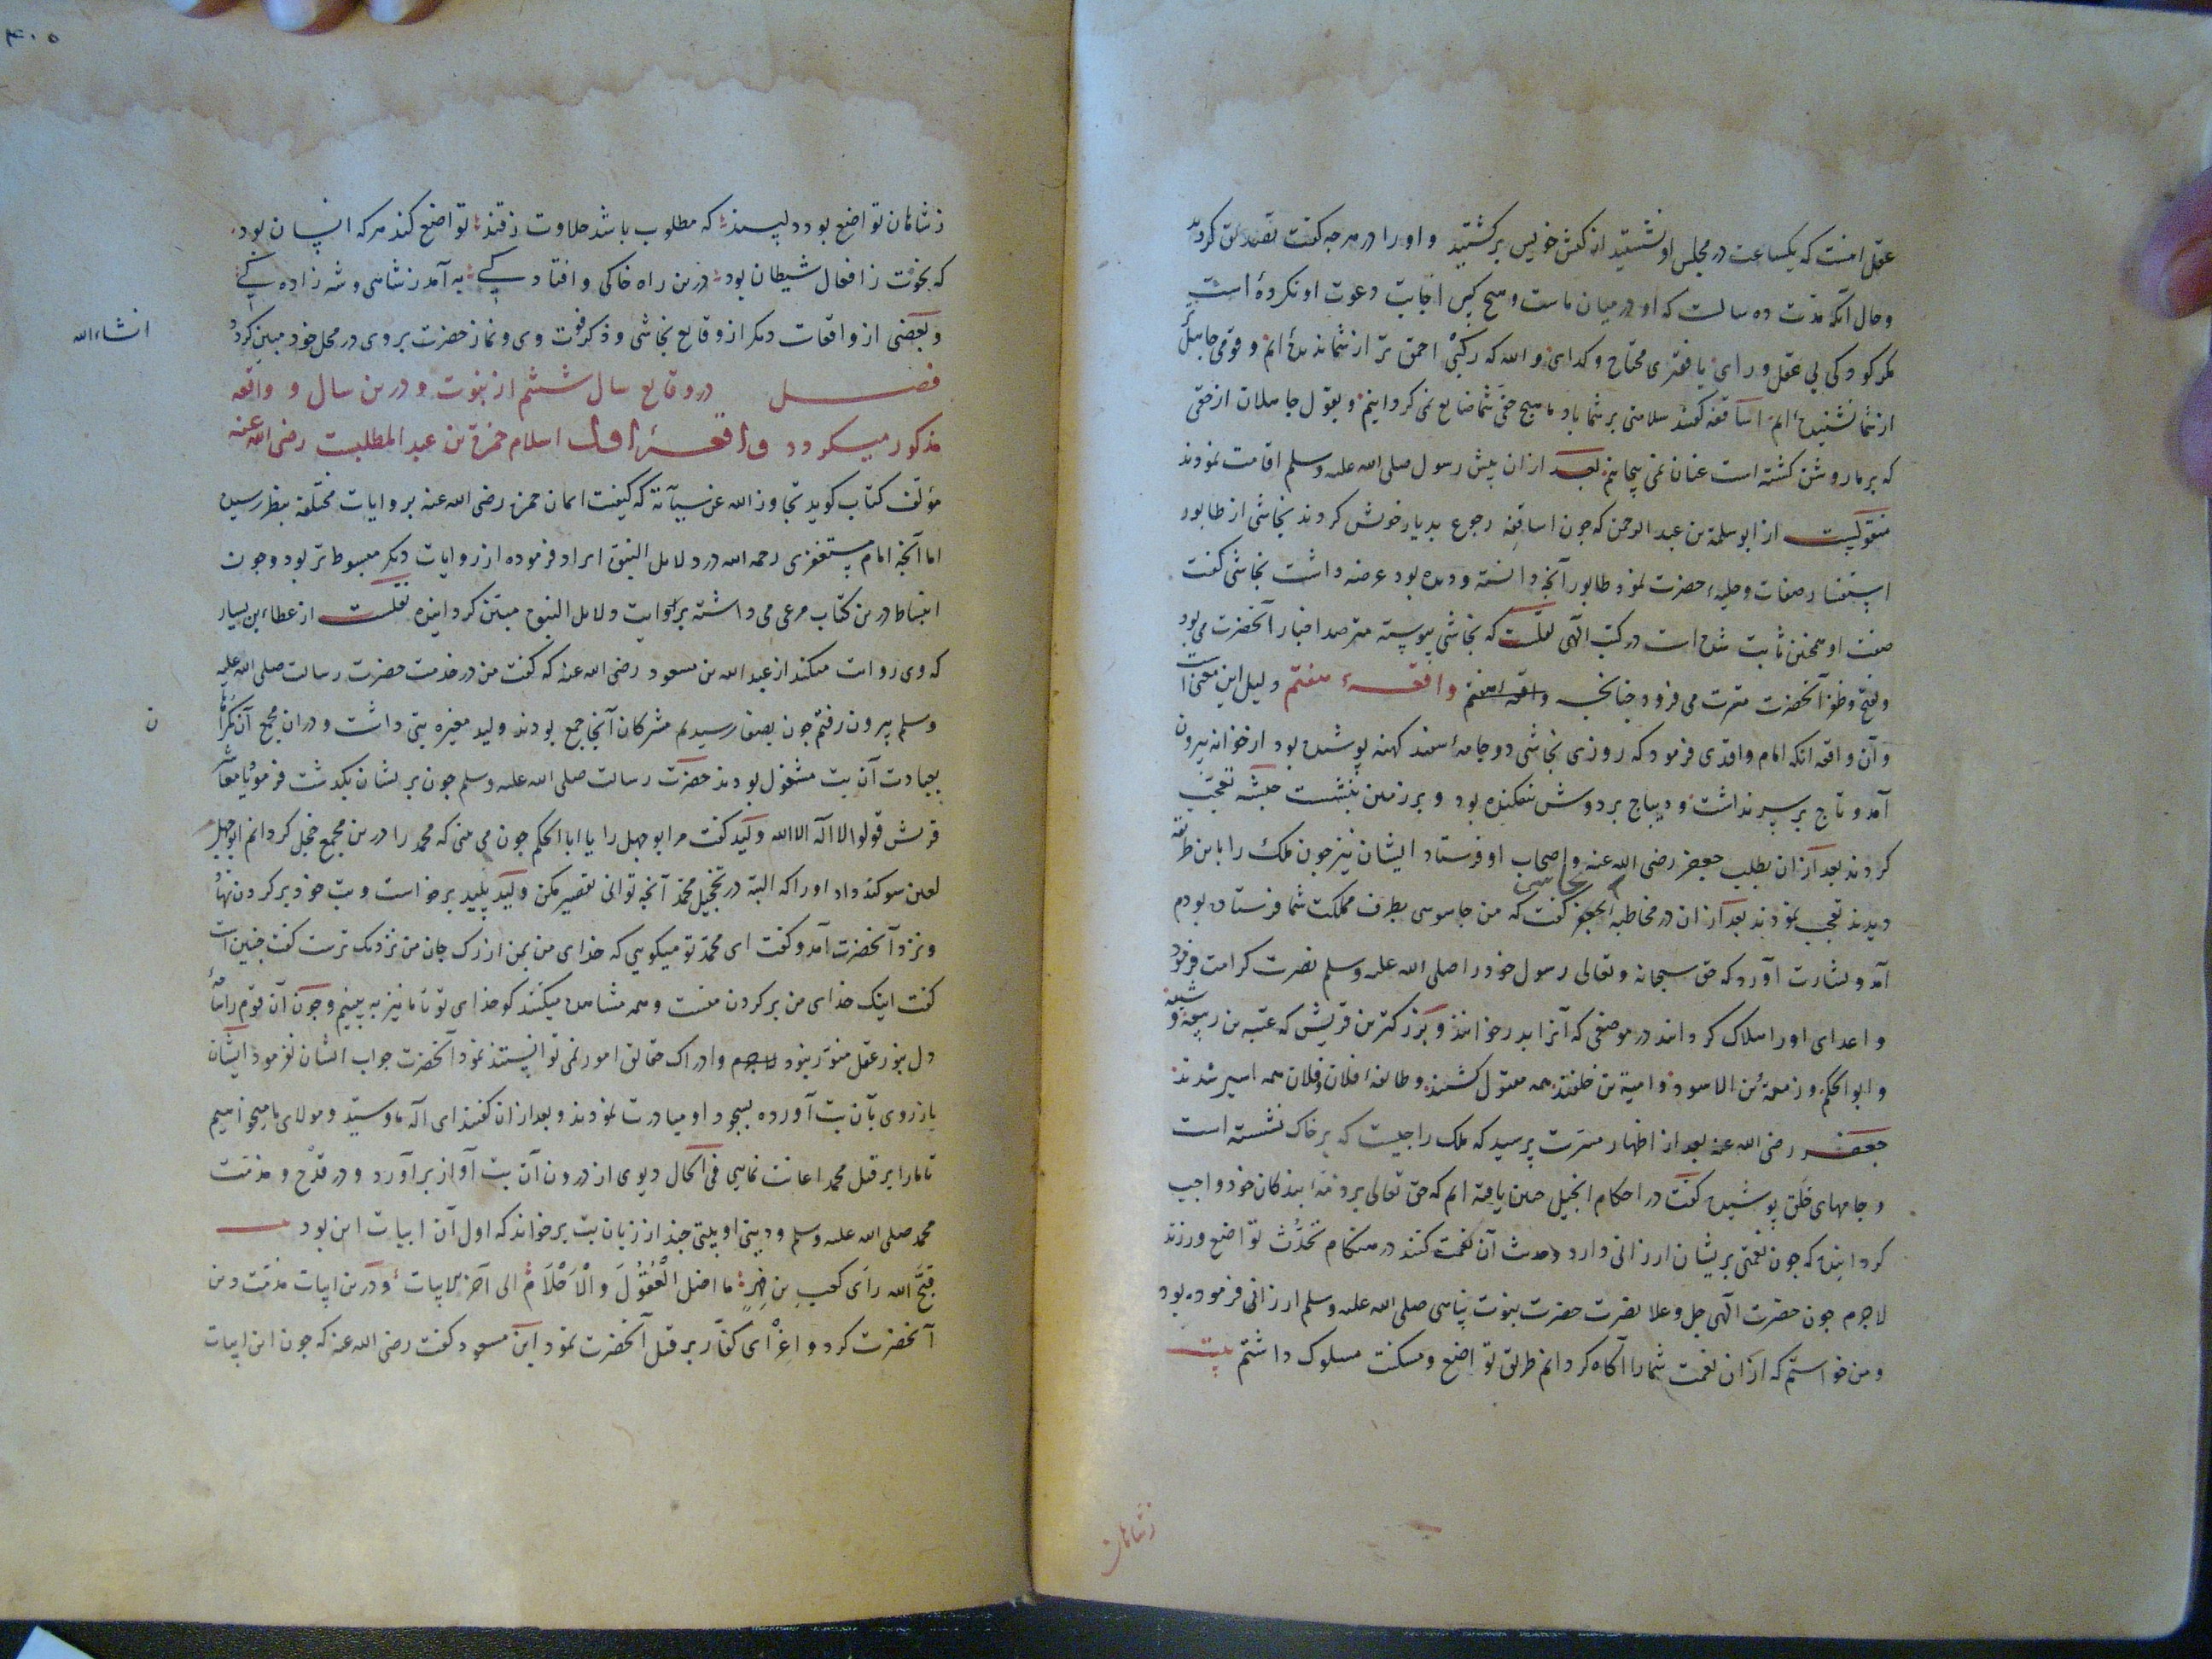 عقل اینست که یکساعت در مجلس او نشستید از کیش خویش برگشتید و او را در هرچه گفت تصدیق کردید
و حال آنکه مدت ده سالست که او در میان ماست و هیچ کس اجابت دعوت او نکرده است
مگر کودکی بی عقل و رای یا فقیری محتاج و کدای والله که رکبی احمق تر از شما ندیده ایم و قومی جاهل تر
از شما نشنیده ایم اساقفه گفتند سلامتی بر شما باد ما هیچ حق شما ضایع نمی کردانیم و بقول جاهلان از حقی
که بر ما روشن کشته است عنان نمی پیچانیم بعد ازان پیش رسول صلی الله علیه وسلم اقامت نمودند
منقولست از ابو سلمة بن عبد الرحمن که چون اساقفه رجوع بدیار خویش کردند نجاشی از طابور
استفسار صفات و حلیهٔ حضرت نمود طابور آنچه دانسته و دیده بود عرضه داشت نجاشی گفت
صفت او همچنین ثابت شده است در کتب الهی نقلست که نجاشی پیوسته مترصد اخبار آنحضرت می بود
و بفتح و ظفر آنحضرت مسرت می فزود چنانچه واقعه هفتم واقعهٔ هفتم دلیل این معنی است
و آن واقعه آنکه امام واقدی فرمود که روزی نجاشی دو جامهٔ سفید کهنه پوشیده بود از خوانه بیرون
آمد و تاج بر سر نداشت و دیباج بر دوش نیفکنده بود و بر زمین بنشست حبشه تعجب
کردند بعد ازان بطلب جعفر رضی الله عنه و اصحاب او فرستاد ایشان نیز چون ملک را باین طریقه
دیدند تعجب نمودند بعد ازان در مخاطبه جعفر نجاشی گفت که من جاسوسی بطرف مملکت شما فرستاده بودم
آمد و بشارت آورد که حق سبحانه وتعالی رسول خود را صلی الله علیه وسلم نصرت کرامت فرمود
و اعدای او را هلاک کردانید در موضعی که آنرا بدر خوانند و بزرکترین قریش که عتبه بن ربیعه و شیبه
و ابو الحکم و زمعة بن الاسود و امیة بن خلفند همه مقتول کشتند و طایفهٔ فلان و فلان همه اسیر شدند
جعفر رضی الله عنه بعد از اظهار مسرت پرسید که ملک را چیست که بر خاک نشسته است
و جامهای خلق پوشیده گفت در احکام انجیل چنین یافته ایم که حق تعالی بر ذمهٔ بندکان خود واجب
کردانیده که چون نعمتی بریشان ارزانی دارد و حدیث آن نعمت کنند در هنکام تحدث تواضع ورزند
لاجرم چون حضرت الهی جل و علا نصرت حضرت نبوت پناهی صلی الله علیه وسلم ارزانی فرموده بود
و من خواستم که ازان نعمت شما را آکاه کردانم طریق تواضع و مسکنت مسلوک داشتم بیت
زشاهان
۴۰۵
زشاهان تواضع بود دلپسند که مطلوب باشد حلاوت ز قند تواضع کند هرکه انسان بود
که نخوت ز افعال شیطان بود درین راه خاکی و افتادکی به آمد ز شاهی و شه زادکی
و بعضی از واقعات دیکر از وقایع نجاشی و ذکر فوت وی و نماز حضرت بر وی در محل خود مبین کردد
انشاءالله
فصل در وقایع سال ششم از نبوت و درین سال و واقعه
مذکور میکردد واقعهٔ اول اسلام حمزة بن عبد المطلبست رضی الله عنه
مؤلف کتاب کوید تجاوز الله عن سیآته که کیفیت ایمان حمزه رضی الله عنه بروایات مختلفه بنظر رسیده
اما آنچه امام مستغفری رحمه الله در دلایل النبوة ایراد فرموده از روایات دیکر مبسوط تر بود و چون
انبساط درین کتاب مرعی می داشته بروایت دلایل النبوة مبین کردانیده نقلست از عطاء بن یسار
که وی روایت میکند از عبد الله بن مسعود رضی الله عنه که گفت من در خدمت حضرت رسالت صلی الله علیه
وسلم بیرون رفتم چون بصفا رسیدیم مشرکان آنجا جمع بودند ولید مغیره بتی داشت و دران مجمع آن کمرا
ن
بعبادت آن بت مشغول بودند حضرت رسالت صلی الله علیه وسلم چون بریشان بکدشت فرمود یا معاشر
قریش قولوا لا اله الا الله ولید گفت مر ابو جهل را یا ابا الحکم چون می بینی که محمد را درین مجمع خجل کردانم ابو جهل
لعین سوکند داد او را که البته در تخجیل محمد آنچه توانی تقصیر مکن ولید پلید برخواست و بت خود بر کردن نهاد
و نزد آنحضرت آمد و گفت ای محمد تو میکویی که خدای من بمن از رک جان من نزدیک ترست گفت چنین است
گفت اینک خدای من بر کردن منست و همه مشاهده میکنند کو خدای تو تا ما نیز به بینیم و چون آن قوم را
دل بنور عقل منور نبود لاجرم و ادراک حقایق امور نمی توانستند نمود آنحضرت جواب ایشان نفرمود ایشان
باز روی بآن بت آورده بسجود او مبادرت نمودند و بعد ازان گفتند ای اله ما و سید و مولای ما میخواهیم
تا ما را بر قتل محمد اعانت نمایی فی الحال دیوی از درون آن بت آواز برآورد و در قدح و مذمت
محمد صلی الله علیه وسلم و دین او بیتی چند از زبان بت برخواند که اول آن ابیات این بود
قبح الله رأی کعب بن فهر ما اضل العقول والاحلام الی آخر الابیات و درین ابیات مذمت دین
آنحضرت کرد و اغرای کفار بر قتل آنحضرت نمود ابن مسعود گفت رضی الله عنه که چون این ابیات